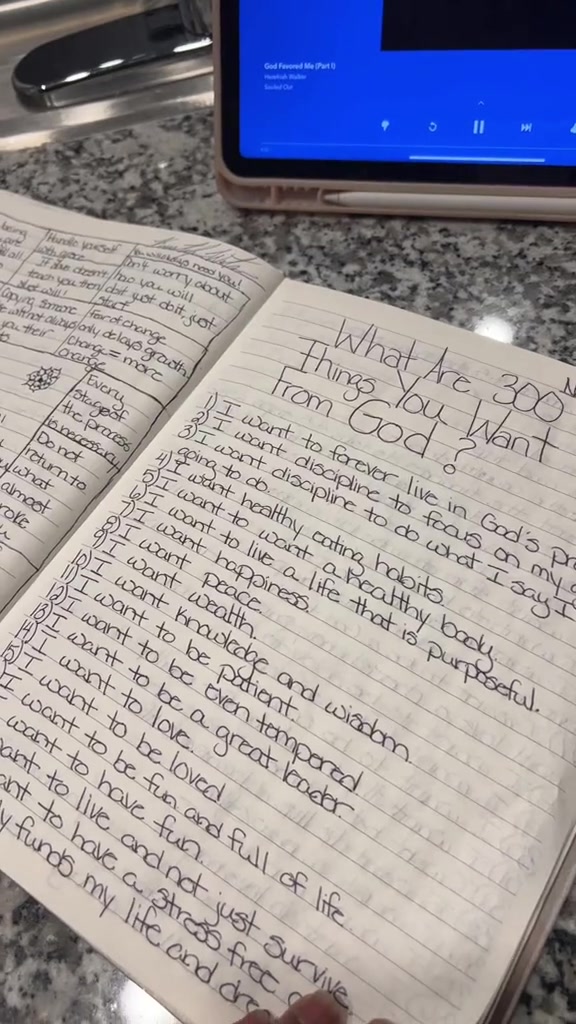 God Favored Me (Part I)
Hezekiah Walker
Souled Out
Handle yourself
with grace
You will always need you!
Don't worry about
how you will
do it, just do it, just
start.
if love doesn't
teach you then
shit will!
Copying someone
without always
Fear of change
only delays growth.
Change = more
change
Every
stage of
the process
is necessary
Do not
return to
what
almost
broke
What Are 300
Things You Want
From God?
1) I want to forever live in God's
2) I want discipline to focus on my
3) I want discipline to do what I say I
going to do.
4) I want healthy eating habits.
5) I want to want a healthy body
6) I want to live a life that is purposeful.
7) I want happiness.
8) I want peace.
9) I want wealth.
10) I want knowledge and wisdom.
11) I want to be patient
12) I want to be even tempered
13) I want to be a great leader.
14) I want to love.
15) I want to be loved
I want to be fun and full of life.
want to have fun.
want to live and not just survive.
want to have a stress free
funds my life and